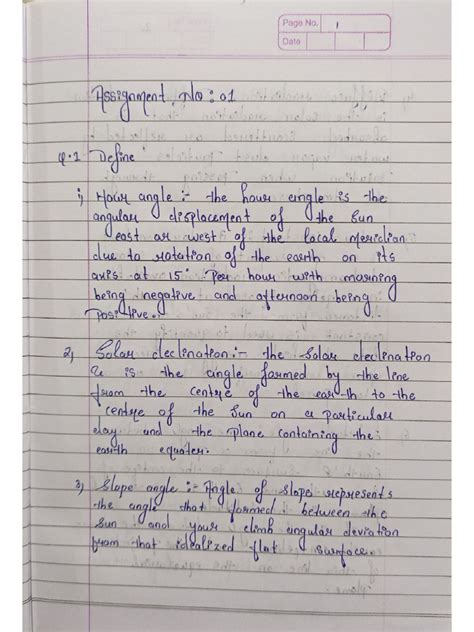 Page No. 1
Date
Assignment No : 01
Q.1 Define
1) Hour angle :- the hour angle is the
angular displacement of the Sun
east or west of the local meridian
due to rotation of the earth on its
axis at 15° per hour with morning
being negative and afternoon being
Positive.
2) Solar declination :- the Solar declination
is the angle formed by the line
from the centre of the earth to the
centre of the Sun on a particular
day and the plane containing the
earth equater.
3) Slope angle :- Angle of Slope represents
the angle that formed between the
Sun and your climb angular deviation
from that idealized flat surface.